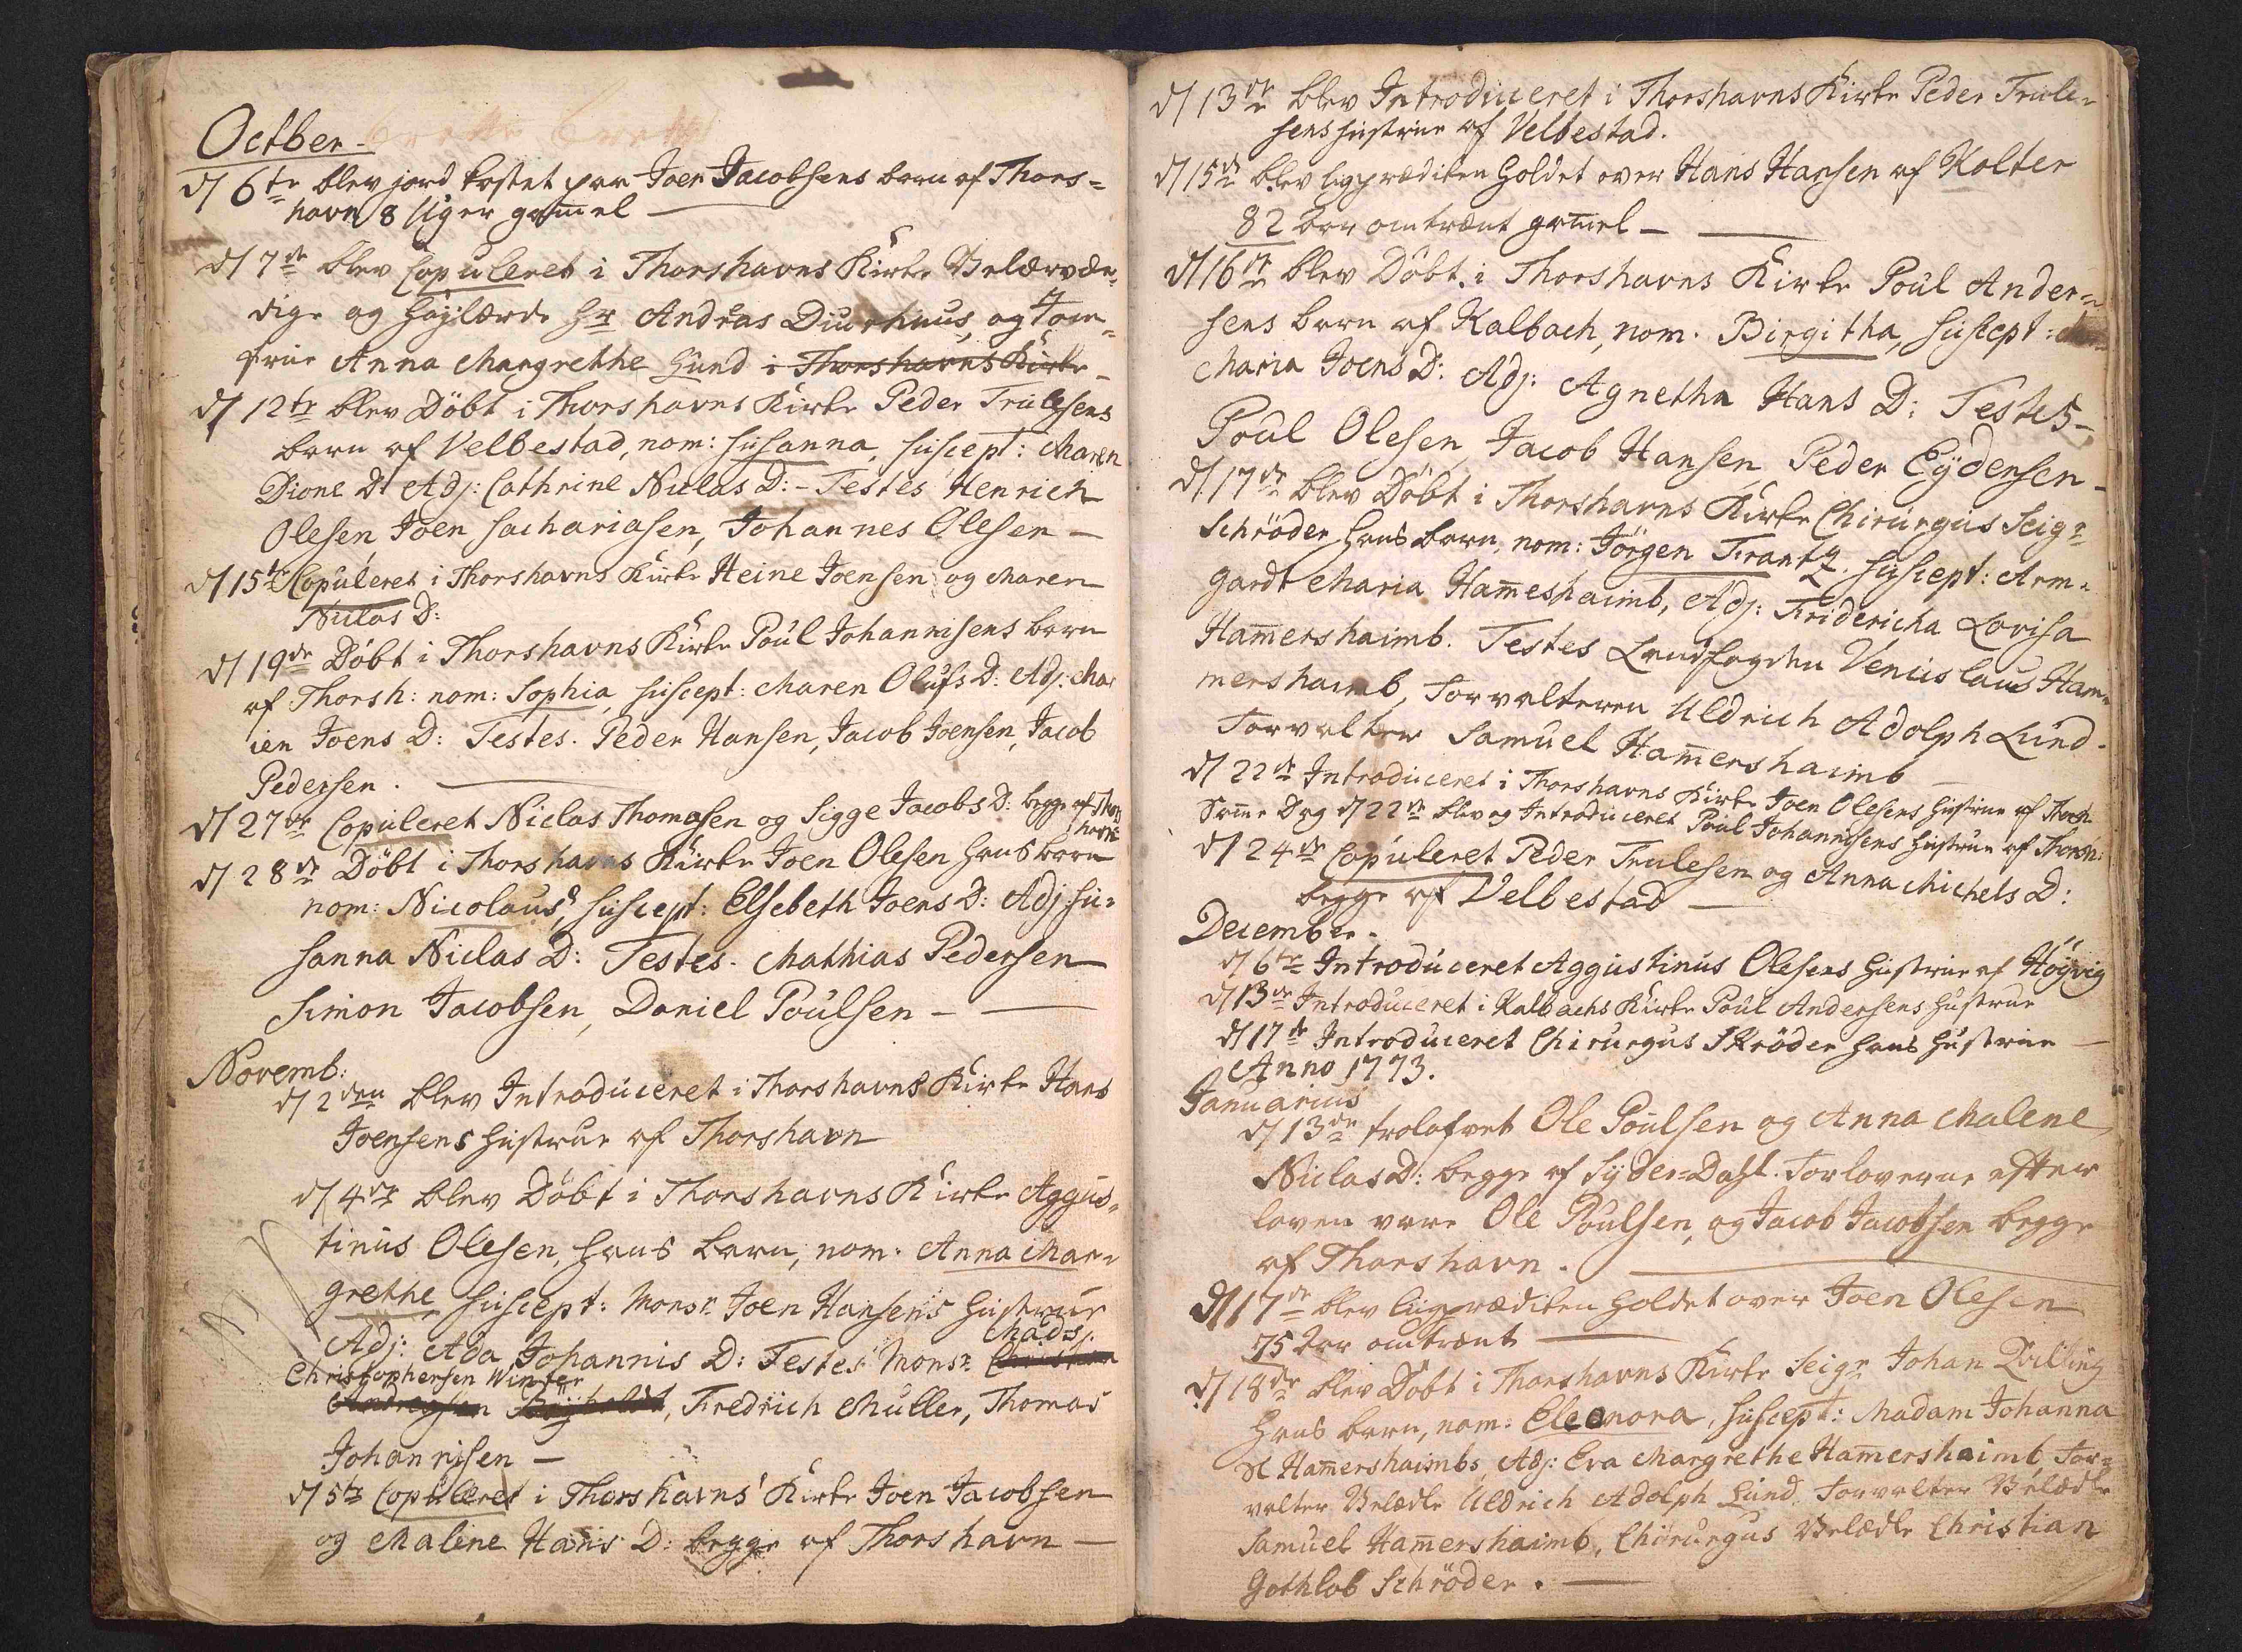 Octber.
d/ 6te blev jord kastet paa Joen Jacobsens barn af Thors=
havn 8 Uger gam̅el
d/ 7de blev Copuleret i Thorshavns Kirke Velærvær=
dige og Høylærde Hr Andreas Diurhuus, og Jom=
frue Anna Margrethe Lund i Thorshavns Kirke
d/ 12te blev Döbt i Thorshavns Kirke Peder Trulesens
barn af Velbestad, nom: Susanna, suscept: Maren
Dione D: Adj: Cathrine Niclas D: - Testes Henrich
Olesen, Joen Sachariasen, Johannes Olesen —
d/ 15de Copuleret i Thorshavns Kirke Heine Joensen og Maren
Niclas D:
d/ 19de Döbt i Thorshavns Kirke Poul Johannisens barn
af Thorsh: nom: Sophia, suscept: Maren Olufs D: Adj: Ma=
rien Joens D: Testes. Peder Hansen, Jacob Joensen, Jacob
Pedersen.
d/ 27de Copuleret Niclas Thomasen og Sigge Jacobs D: begge af Thors
havn
d/ 28de Döbt i Thorshavns Kirke Joen Olesen hans barn
nom: Nicolaus, suscept: Elsebeth Joens D: Adj: Su=
sanna Niclas D: Testes. Mathias Pedersen
Simon Jacobsen, Daniel Poulsen —
Novemb:
d/ 2den blev Introduceret i Thorshavns Kirke Hans
Joensens Hustrue af Thorshavn
d/ 4de blev Döbt i Thorshavns Kirke Aggus=
tinus Olesen, hans barn, nom: Anna Mar=
grethe suscept: Monsr. Joen Hansens Hustrue
Adj: Ada Johannis D: Testes Monsr Mads
Christophersen Winter
, Fredrich Muller, Thomas
Johannisen —
d/ 5te Copuleret i Thorshavns Kirke Joen Jacobsen
og Malene Hans D: begge af Thorshavn —
d/ 13de blev Introduceret i Thorshavns Kirke Peder Trule=
sens Hustrue af Velbestad.
d/ 15de blev ligprædiken Holdet over Hans Hansen af Kolter
82 Aar omtrænt gam̅el —
d/ 16de blev Döbt i Thorshavns Kirke Poul Ander=
sens barn af Kalbach, nom. Birgitha, suscept:
Maria Joens D: Adj: Agnetha Hans D: Testes —
Poul Olesen, Jacob Hansen, Peder Eydensen —
d/ 17de blev Döbt i Thorshavns Kirke Chirurgus Seigr
Schröder hans barn, nom: Jörgen Frantz. suscept: Arm=
gardt Maria Ham̅eshaimb, Adj: Fridericha Lovisa
Ham̅ershaimb. Testes Landfogden Venceslaus Ham=
mershaimb, Forvalteren Uldrich Adolph Lund.
Forvalter Samuel Ham̅ershaimb —
d/ 22de Introduceret i Thorshavns Kirke Joen Olesens Hustrue af Thorsh.
Sam̅e Dag d/ 22de blev og Introduceret Poul Johannisens Hustrue af Thorsh:
d/ 24de Copuleret Peder Trulesen og Anna Michels D:
begge af Velbestad —
December.
d/ 6te Introduceret Aggustinus Olesens Hustrue af Höyvig
d/ 13de Introduceret i Kalbachs Kirke Poul Andersens Hustrue
d/ 17de Introduceret Chirurgus Skröder hans Hustrue —
Anno 1773.
Januarius
d/ 13de trolofvet Ole Poulsen og Anna Malene
Niclas D: begge af Syder-Dahl. Forloverne efter
loven vare Ole Poulsen, og Jacob Jacobsen begge
af Thorshavn.
d/ 17de blev liigprædiken Holdet over Joen Olesen
75 Aar omtrænt —
d/ 18de blev Döbt i Thorshavns Kirke Seigr Johan Qvilling
hans barn, nom: Eleonora, suscept: Madam Johanna
Sl Ham̅ershaimbs, Adj: Eva Margrethe Ham̅ershaimb, For=
valter Velædle Uldrich Adolph Lund, Forvalter Velædle
Samuel Ham̅ershaimb, Chirurgus Velædle Christian
Gothlob Schröder. —